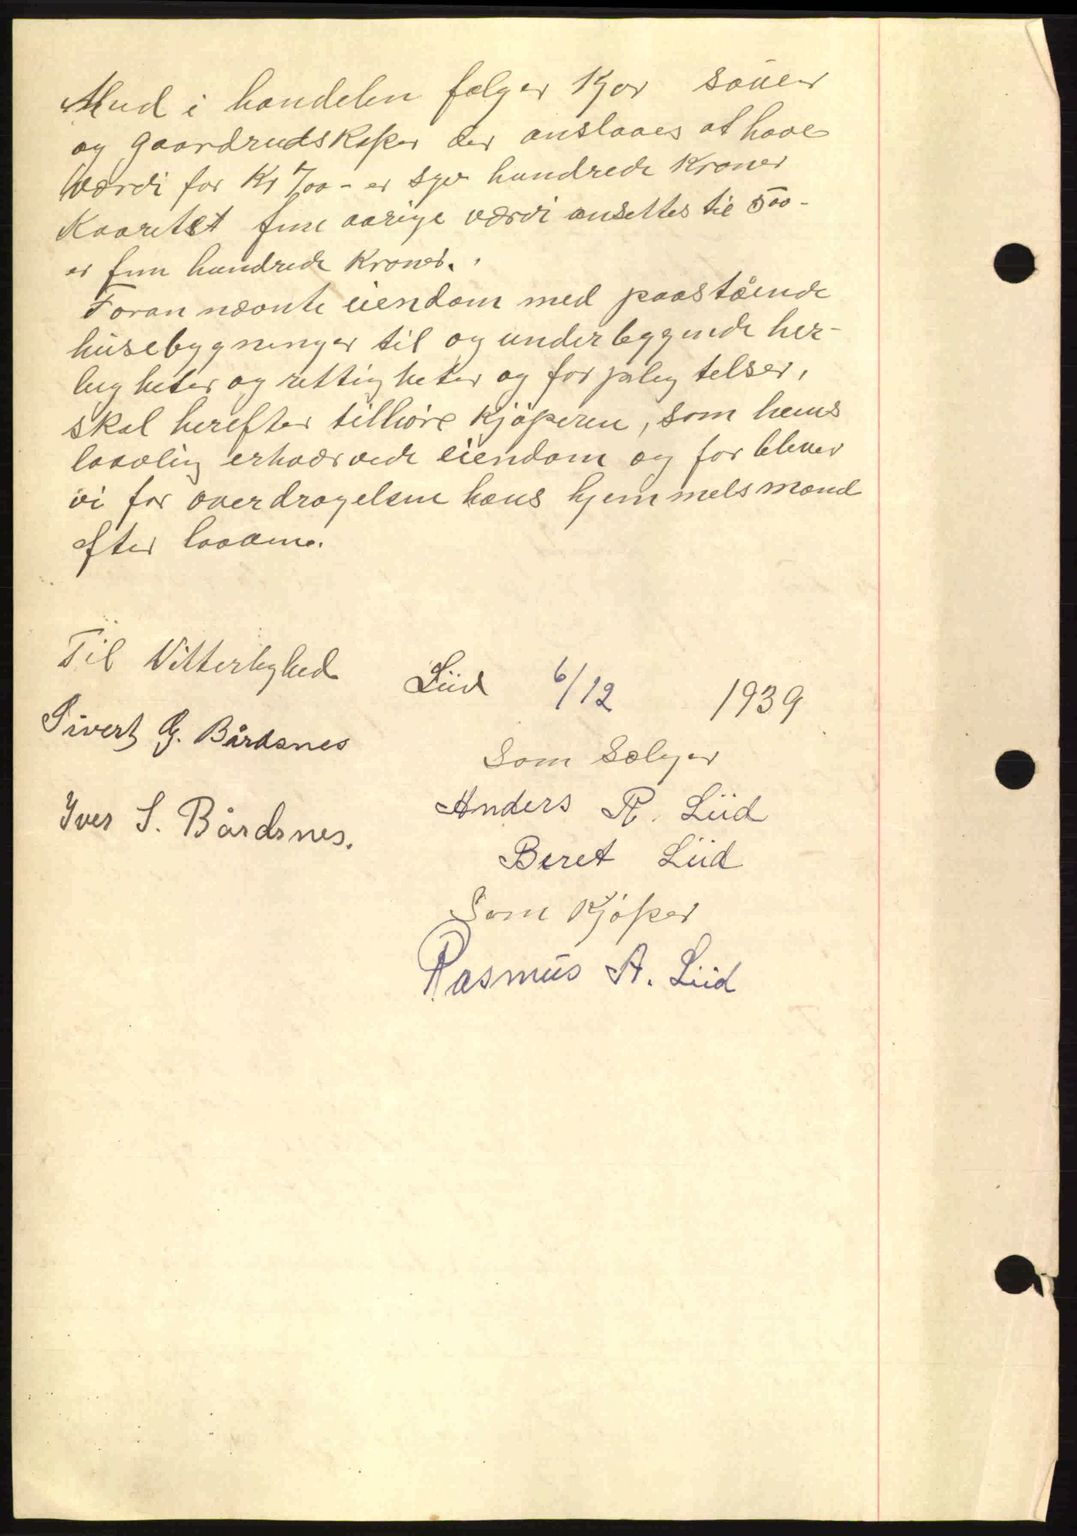 Med i handelen følger Kjør sauer
og gaardredskaper der anslaaes at have
værdi for Kr 700 - er syv hundrede Kroner
Kaaretst fem aarige værdi ansettes til 500 -
er fem hundrede Kroner.
Foran nævnte eiendom med paastående
husebygninger til og underliggende her-
ligheter og rettigheter og forpligtelser,
skal herefter tilhøre kjøperen, som hans
lovlig erhværvede eiendom og forbliver
vi for overdragelsen hans hjemmelsmænd
efter loven.
Til Vitterlighed
Liid 6/12 1939
Sivert G. Bårdsnes
Som Sælger
Iver S. Bårdsnes.
Anders R. Liid
Beret Liid
Som Kjøper
Rasmus A. Liid